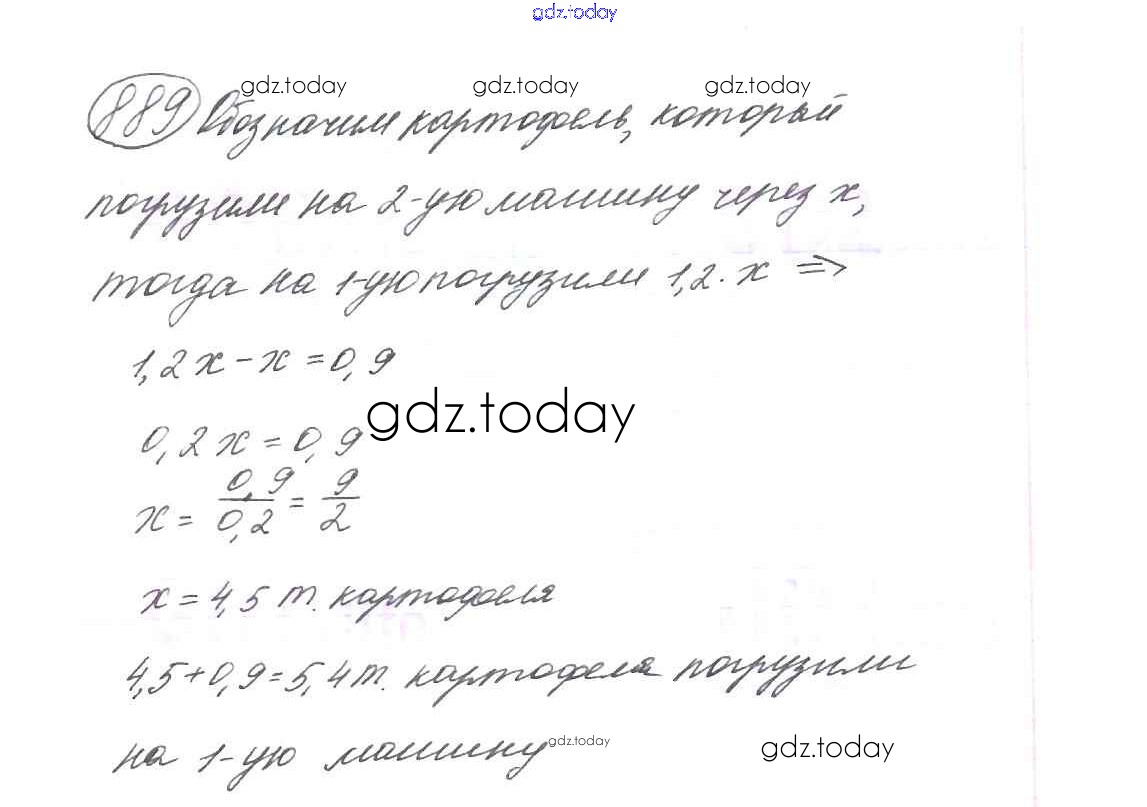 gdz.today
gdz.today gdz.today gdz.today
889 Обозначим картофель, который
погрузили на 2-ую машину через x,
тогда на 1-ую погрузили 1,2·x ⇒
1,2x - x = 0,9
gdz.today
0,2x = 0,9
x = 0,9/0,2 = 9/2
x = 4,5 т. картофеля
4,5+0,9=5,4т. картофеля погрузили
на 1-ую машину
gdz.today gdz.today